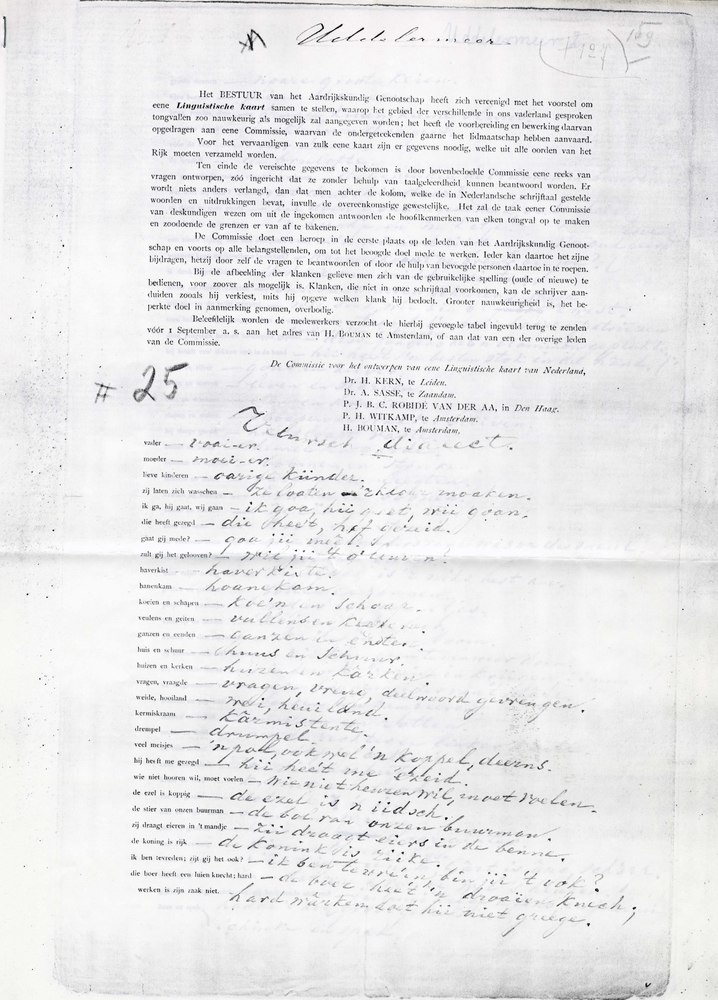 Uddelermeer
159
Het BESTUUR van het Aardrijkskundig Genootschap heeft zich vereenigd met het voorstel om
eene Linguistische kaart samen te stellen, waarop het gebied der verschillende in ons vaderland gesproken
tongvallen zoo nauwkeurig als mogelijk zal aangegeven worden; het heeft de voorbereiding en bewerking daarvan
opgedragen aan eene Commissie, waarvan de ondergeteekenden gaarne het lidmaatschap hebben aanvaard.
Voor het vervaardigen van zulk eene kaart zijn er gegevens noodig, welke uit alle oorden van het
Rijk moeten verzameld worden.
Ten einde de vereischte gegevens te bekomen is door bovenbedoelde Commissie eene reeks van
vragen ontworpen, zóó ingericht dat ze zonder behulp van taalgeleerdheid kunnen beantwoord worden. Er
wordt niets anders verlangd, dan dat men achter de kolom, welke de in Nederlandsche schrijftaal gestelde
woorden en uitdrukkingen bevat, invulle de overeenkomstige gewestelijke. Het zal de taak eener Commissie
van deskundigen wezen om uit de ingekomen antwoorden de hoofdkenmerken van elken tongval op te maken
en zoodoende de grenzen er van af te bakenen.
De Commissie doet een beroep in de eerste plaats op de leden van het Aardrijkskundig Genoot-
schap en voorts op alle belangstellenden, om tot het beoogde doel mede te werken. Ieder kan daartoe het zijne
bijdragen, hetzij door zelf de vragen te beantwoorden of door de hulp van bevoegde personen daartoe in te roepen.
Bij de afbeelding der klanken gelieve men zich van de gebruikelijke spelling (oude of nieuwe) te
bedienen, voor zoover als mogelijk is. Klanken, die niet in onze schrijftaal voorkomen, kan de schrijver aan-
duiden zooals hij verkiest, mits hij opgeve welken klank hij bedoelt. Grooter nauwkeurigheid is, het be-
perkte doel in aanmerking genomen, overbodig.
Beleefdelijk worden de medewerkers verzocht de hierbij gevoegde tabel ingevuld terug te zenden
vóór 1 September a. s. aan het adres van H. BOUMAN te Amsterdam, of aan dat van een der overige leden
van de Commissie.
De Commissie voor het ontwerpen van eene Linguistische kaart van Nederland,
Dr. H. KERN, te Leiden.
Dr. A. SASSE, te Zaandam.
P. J. B. C. ROBIDÉ VAN DER AA, in Den Haag.
P. H. WITKAMP, te Amsterdam.
H. BOUMAN, te Amsterdam.
# 25
dialect.
vader — vaaier.
moeder — moei-er.
lieve kinderen — oarige kiinder.
zij laten zich wasschen — ze loaten moaken.
ik ga, hij gaat, wij gaan — ik goa, hij goet, wij goan.
die heeft gezegd — die heet,
gaat gij mede? — goa jij meê?
zult gij het gelooven? — wil jij 't g'leuven?
haverkist — haverkiste.
hanenkam — hoanekam.
koeien en schapen — koe'n en schoap.
veulens en geiten — vullens en
ganzen en eenden — ganzen
huis en schuur — huus en schuur.
huizen en kerken — huzen en karken.
vragen, vraagde — vragen, vreue, deelwoord gevrengen.
weide, hooiland — wei, heuiland.
kermiskraam — karmistente.
drempel — drumpel.
veel meisjes — 'n pos, ook wel 'n koppel, deerns.
hij heeft me gezegd — hij heet me 'ezeid.
wie niet hooren wil, moet voelen — wie niet heuren wil, moet voelen.
de ezel is koppig — de ezel is niidsch.
de stier van onzen buurman — de bol van onzen buurman.
zij draagt eieren in 't mandje — zij droagt eiers in de benne.
de koning is rijk — de konink is rijke.
ik ben tevreden; zijt gij het ook? — ik ben tevre'en, bin jij 't ook?
die boer heeft een luien knecht; hard — de boer heet 'n droaien knech;
werken is zijn zaak niet. hard warken doet hij niet groege.